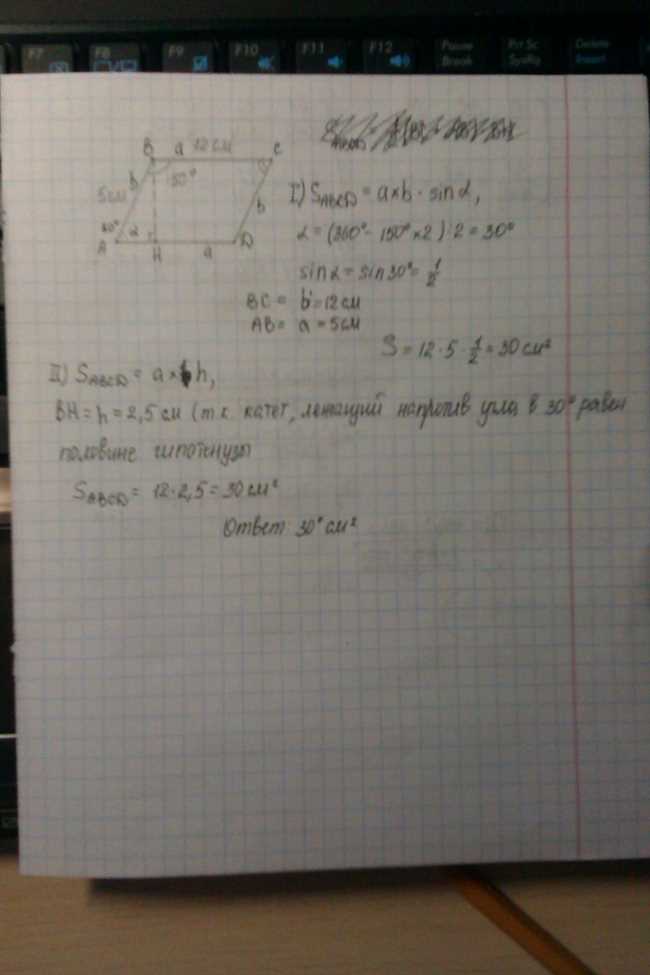 F7 F8 F9 F10 F11 F12 Pause Break Prt Sc SysRq Delete Insert
B a 12 см C
b 50°
5см b
30° α
A H a D
I) S ABCD = a×b · sinα,
α = (360° - 150°×2):2 = 30°
sinα = sin30° = 1/2
BC = b = 12 см
AB = a = 5см
S = 12 · 5 · 1/2 = 30 см²
II) S ABCD = a × h,
BH = h = 2,5 см (т.к. катет, лежащий напротив угла в 30° равен
половине гипотенузы
S ABCD = 12 · 2,5 = 30 см²
Ответ: 30° см²